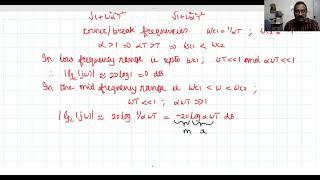 √1+ω²T² √1+ω²α²T²
corner/break frequencies ωc1 = 1/αT ; ωc2 =
α > 1 ⇒ αT > T ⇒ ωc1 < ωc2
In low frequency range ie upto ωc1 ; ωT<<1 and αωT <<1
∴ |Gc(jω)| ≈ 20 log 1 = 0 dB
In the mid frequency range ie ωc1 < ω < ωc2 ;
ωT <<1 ; αωT >>1
|Gc(jω)| ≈ 20 log 1/αωT = -20 log αωT dB
m x